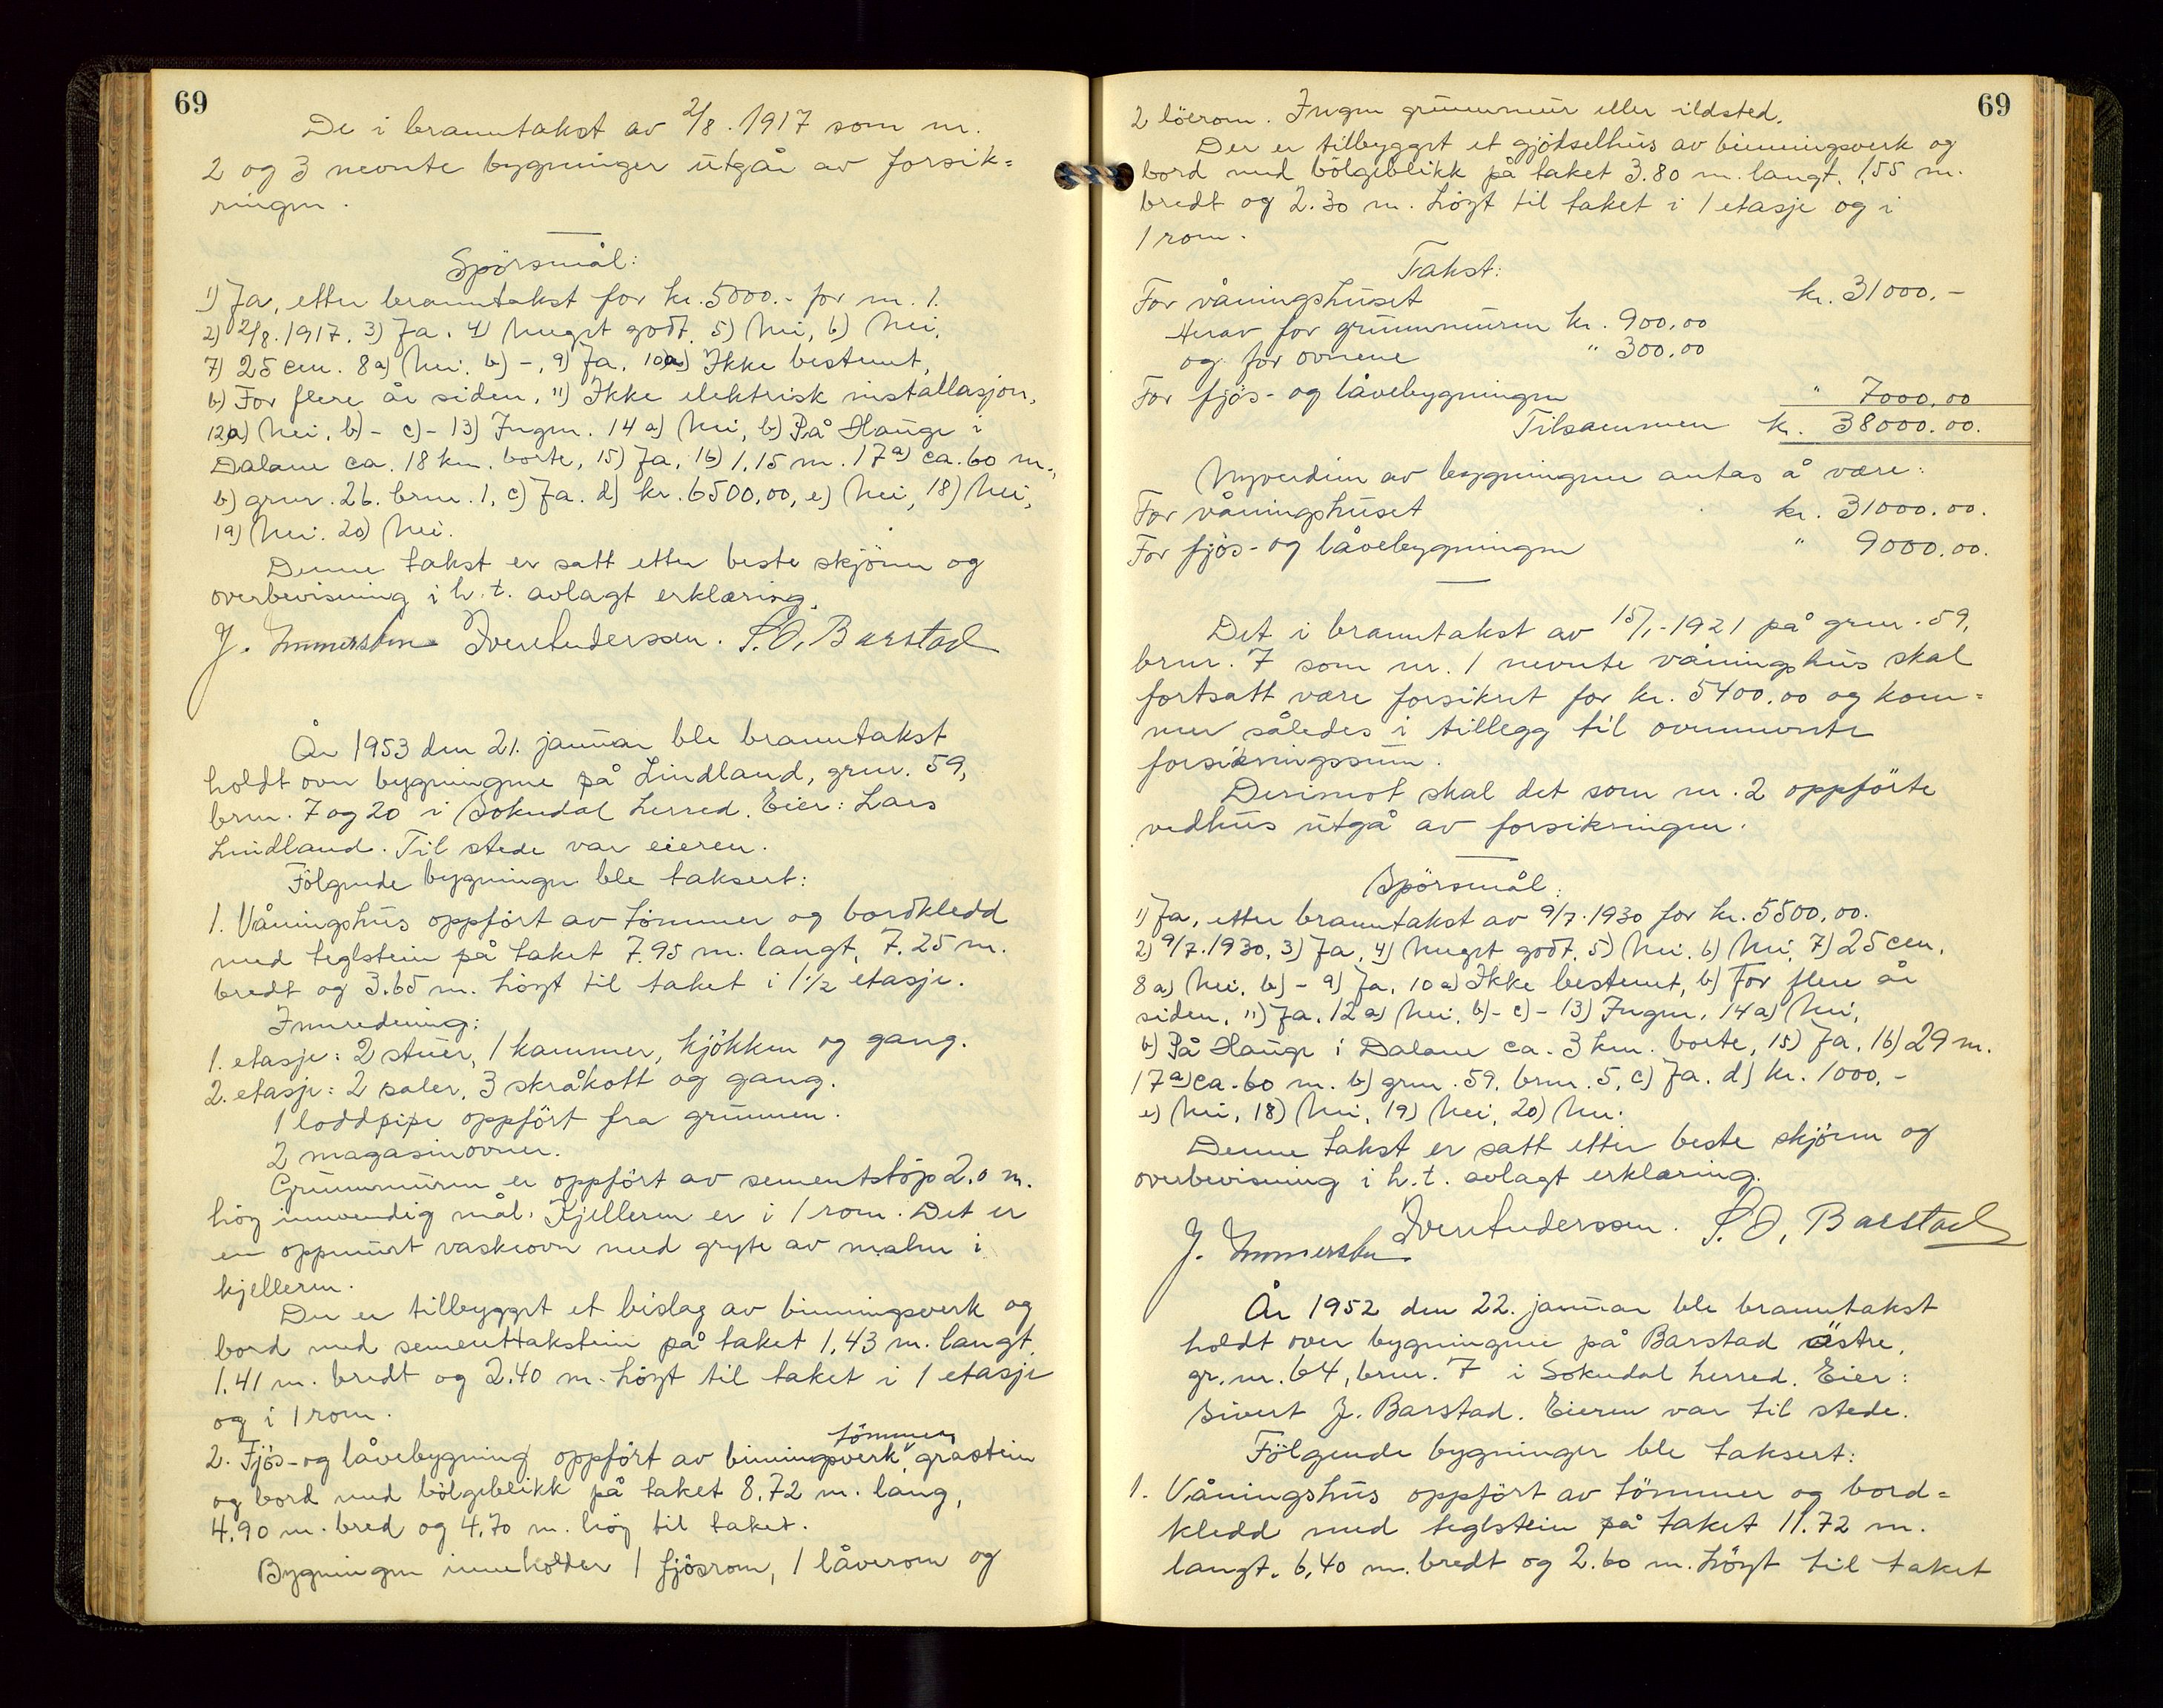 69
De i branntakst av 2/8. 1917 som nr.
2 og 3 nevnte bygninger utgår av forsik=
ringen.
Spörsmål:
1) Ja, etter branntakst for kr. 5000.- for nr. 1.
2) 2/8. 1917. 3) Ja. 4) Meget godt. 5) Nei, 6) Nei,
7) 25 cm. 8a) Nei. b) -, 9) Ja. 10a) Ikke bestemt,
b) For flere år siden, 11) Ikke elektrisk installasjon,
12a) Nei, b) - c) - 13) Ingen. 14 a) Nei, b) På Hauge i
Dalane ca. 18 km. borte, 15) Ja, 16) 1,15 m. 17a) ca. 60 m.,
b) gnr. 26. brnr. 1, c) Ja. d) kr. 6500,00, e) Nei, 18) Nei,
19) Nei. 20) Nei.
Denne takst er satt etter beste skjönn og
overbevisning i h. t. avlagt erklæring.
J. Immerstein Iver Anderssen. S. O. Barstad
År 1953 den 21. januar ble branntakst
holdt over bygningene på Lindland, grnr. 59,
brnr. 7 og 20 i Sokndal herred. Eier: Lars
Lindland. Til stede var eieren.
Fölgende bygninger ble taksert:
1. Våningshus oppfört av tömmer og bordkledd
med teglstein på taket 7.95 m. langt, 7.25 m.
bredt og 3.65 m. höyt til taket i 1 1/2 etasje.
Innredning:
1. etasje: 2 stuer, 1 kammer, kjökken og gang.
2. etasje: 2 saler, 3 skråkott og gang.
1 loddpipe oppfört fra grunnen.
2 magasinovner.
Grunnmuren er oppfört av sementstöp 2.0 m.
höy innvendig mål. Kjelleren er i 1 rom. Det er
en oppmurt vaskeovn med gryte av malm i
kjelleren.
Der er tilbygget et bislag av binningsverk og
bord med sementtakstein på taket 1.43 m. langt,
1.41 m. bredt og 2.40 m. höyt til taket i 1 etasje
og i 1 rom.
tömmer,
2. Fjös- og låvebygning oppfört av binningsverk, gråstein
og bord med bölgeblikk på taket 8.72 m. lang,
4.90 m. bred og 4.70 m. höy til taket.
Bygningen inneholder 1 fjösrom, 1 låverom og
69
2 löerom. Ingen grunnmur eller ildsted.
Der er tilbygget et gjödselhus av binningsverk og
bord med bölgeblikk på taket 3.80 m. langt, 1.55 m.
bredt og 2.30 m. höyt til taket i 1 etasje og i
1 rom.
Takst:
For våningshuset kr. 31000.-
Herav for grunnmuren kr. 900,00
og for ovnene " 300,00
For fjös- og låvebygningen " 7000,00
Tilsammen kr. 38000.00.
Nyverdien av bygningene antas å være:
For våningshuset kr. 31000.00.
For fjös- og låvebygningen " 9000.00.
Det i branntakst av 15/1-1921 på grnr. 59,
brnr. 7 som nr. 1 nevnte våningshus skal
fortsatt være forsikret for kr. 5400.00 og kom=
mer således i tillegg til ovennevnte
forsikringssum.
Derimot skal det som nr. 2 oppförte
vedhus utgå av forsikringen.
Spörsmål:
1) Ja, etter branntakst av 9/7. 1930 for kr. 5500,00.
2) 9/7. 1930, 3) Ja, 4) Meget godt, 5) Nei, 6) Nei, 7) 25 cm,
8 a) Nei, b) - 9) Ja, 10 a) Ikke bestemt, b) For flere år
siden, 11) Ja, 12 a) Nei, b) - c) - 13) Ingen, 14 a) Nei,
b) På Hauge i Dalane ca. 3 km. borte, 15) Ja, 16) 29 m.
17 a) ca. 60 m. b) grnr. 59, brnr. 5, c) Ja. d) kr. 1000.-
e) Nei, 18) Nei, 19) Nei, 20) Nei.
Denne takst er satt etter beste skjönn og
overbevisning i h. t. avlagt erklæring.
J. Immerstein Iver Anderssen. S. O. Barstad
År 1952 den 22. januar ble branntakst
holdt over bygningene på Barstad östre,
gr.nr. 64, brnr. 7 i Sokndal herred. Eier:
Sivert J. Barstad. Eieren var til stede.
Fölgende bygninger ble taksert:
1. Våningshus oppfört av tömmer og bord=
kledd med teglstein på taket 11.72 m.
langt, 6,40 m. bredt og 2.60 m. höyt til taket